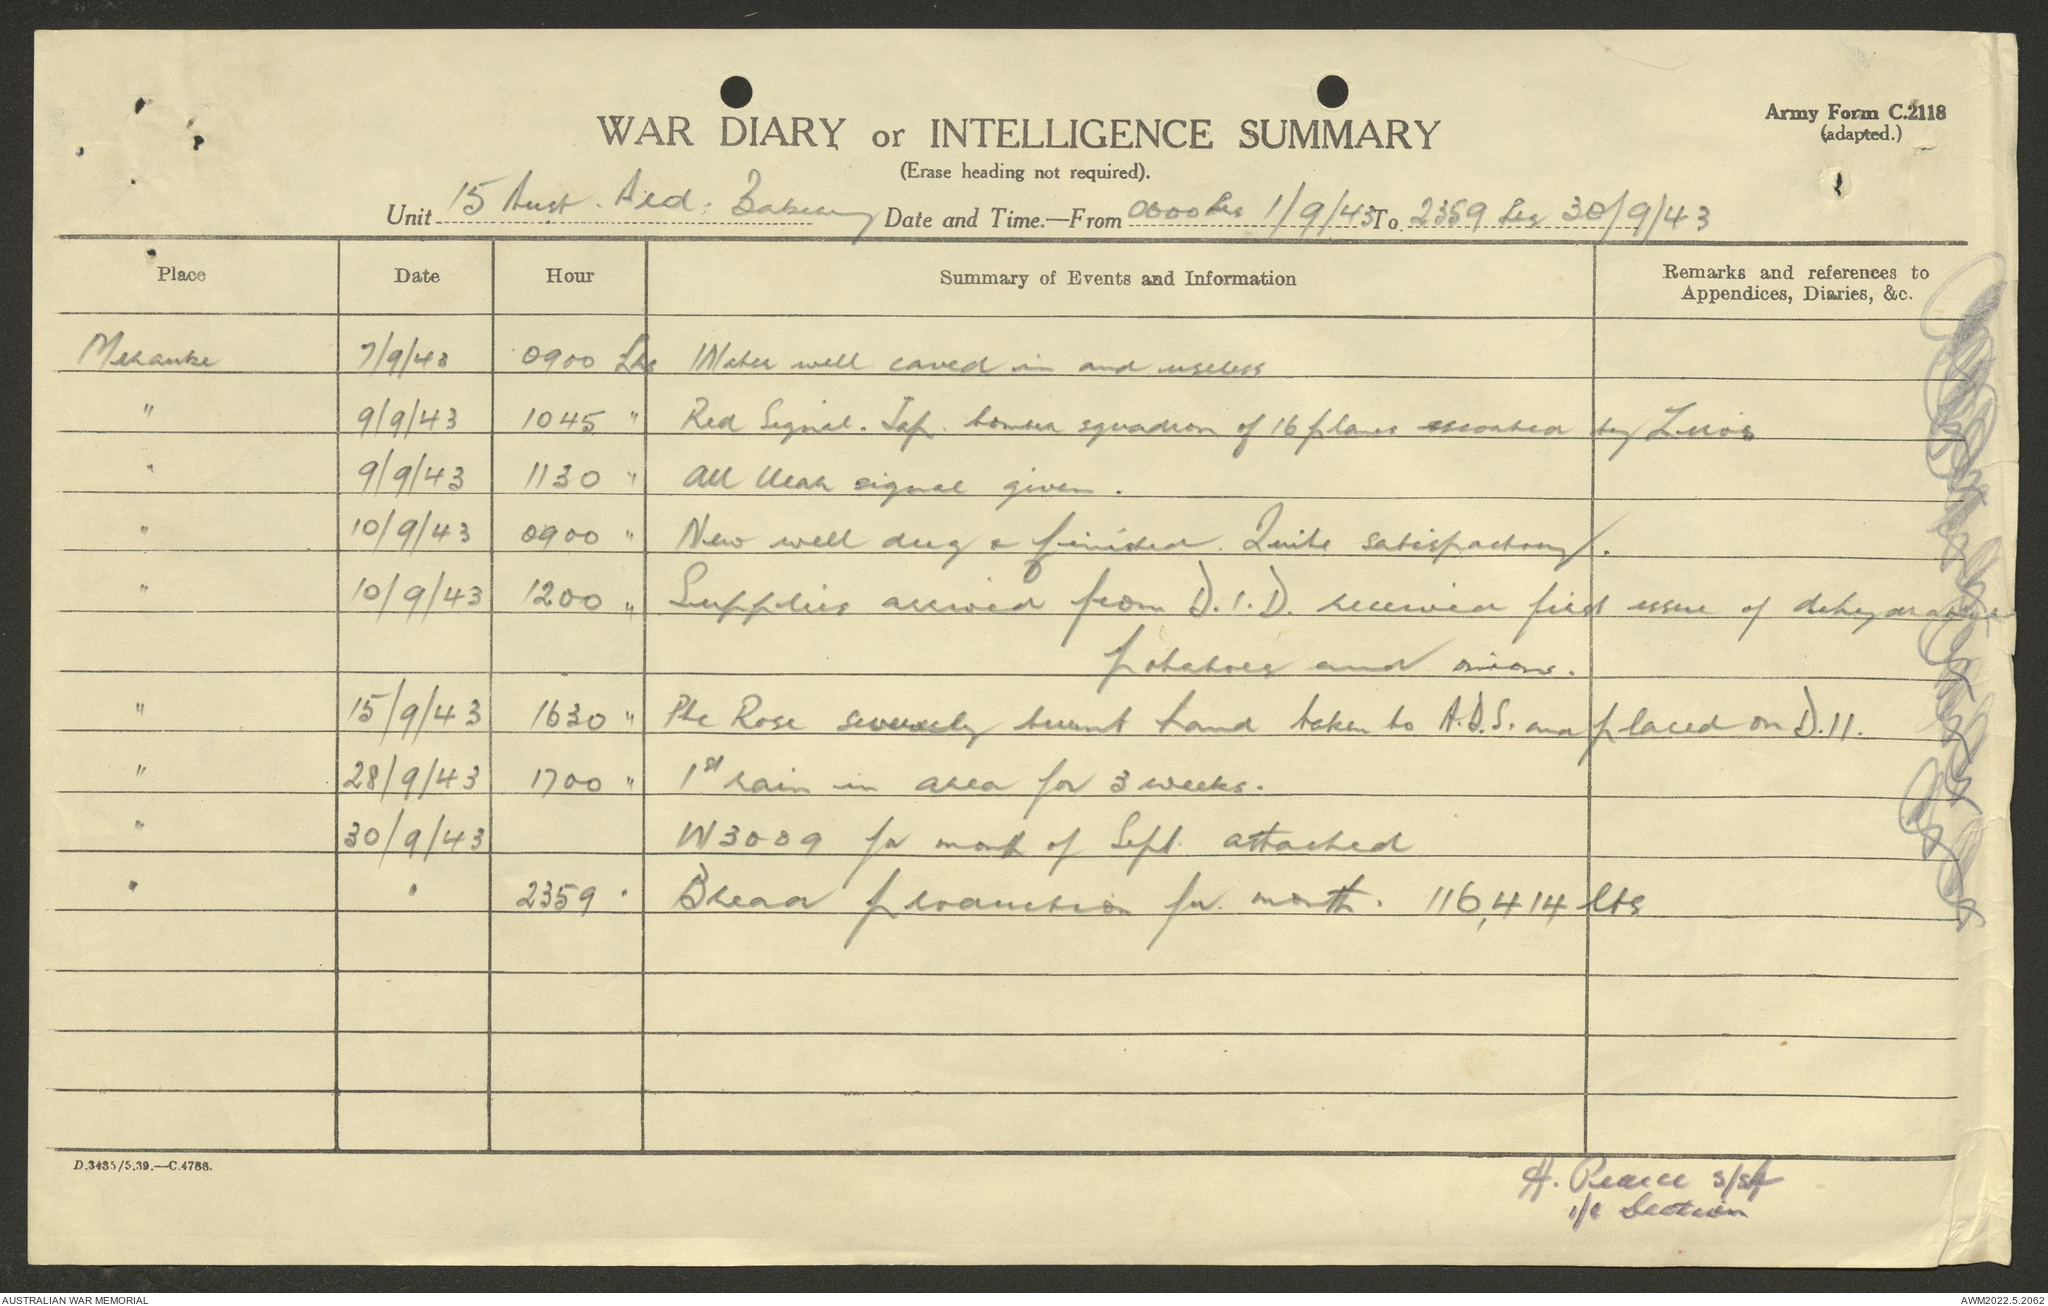 Army Form C.2118
(adapted.)
WAR DIARY or INTELLIGENCE SUMMARY
(Erase heading not required).
Unit 15 Aust. Fld. Bakery Date and Time.—From 0600 hrs 1/9/43 To 2359 hrs 30/9/43
Place Date Hour Summary of Events and Information Remarks and references to
Appendices, Diaries, &c.
Merauke 7/9/43 0900 hrs Water well caved in and useless
" 9/9/43 1045 " Red Signal. Jap. bomber squadron of 16 planes escorted by Zeros
" 9/9/43 1130 " All clear signal given.
" 10/9/43 0900 " New well dug & finished. Quite satisfactory.
" 10/9/43 1200 " Supplies arrived from D.I.D. received first issue of dehydrated
potatoes and onions.
" 15/9/43 1630 " Pte Rose severely burnt hand taken to A.D.S. and placed on D.11.
" 28/9/43 1700 " 1st rain in area for 3 weeks.
" 30/9/43 W3009 for month of Sept. attached
" " 2359 " Bread production for month. 116,414 lbs
D.3435/5.39.—C.4788.
H. Pearce S/Sgt
i/c Section
AUSTRALIAN WAR MEMORIAL AWM2022.5.2062